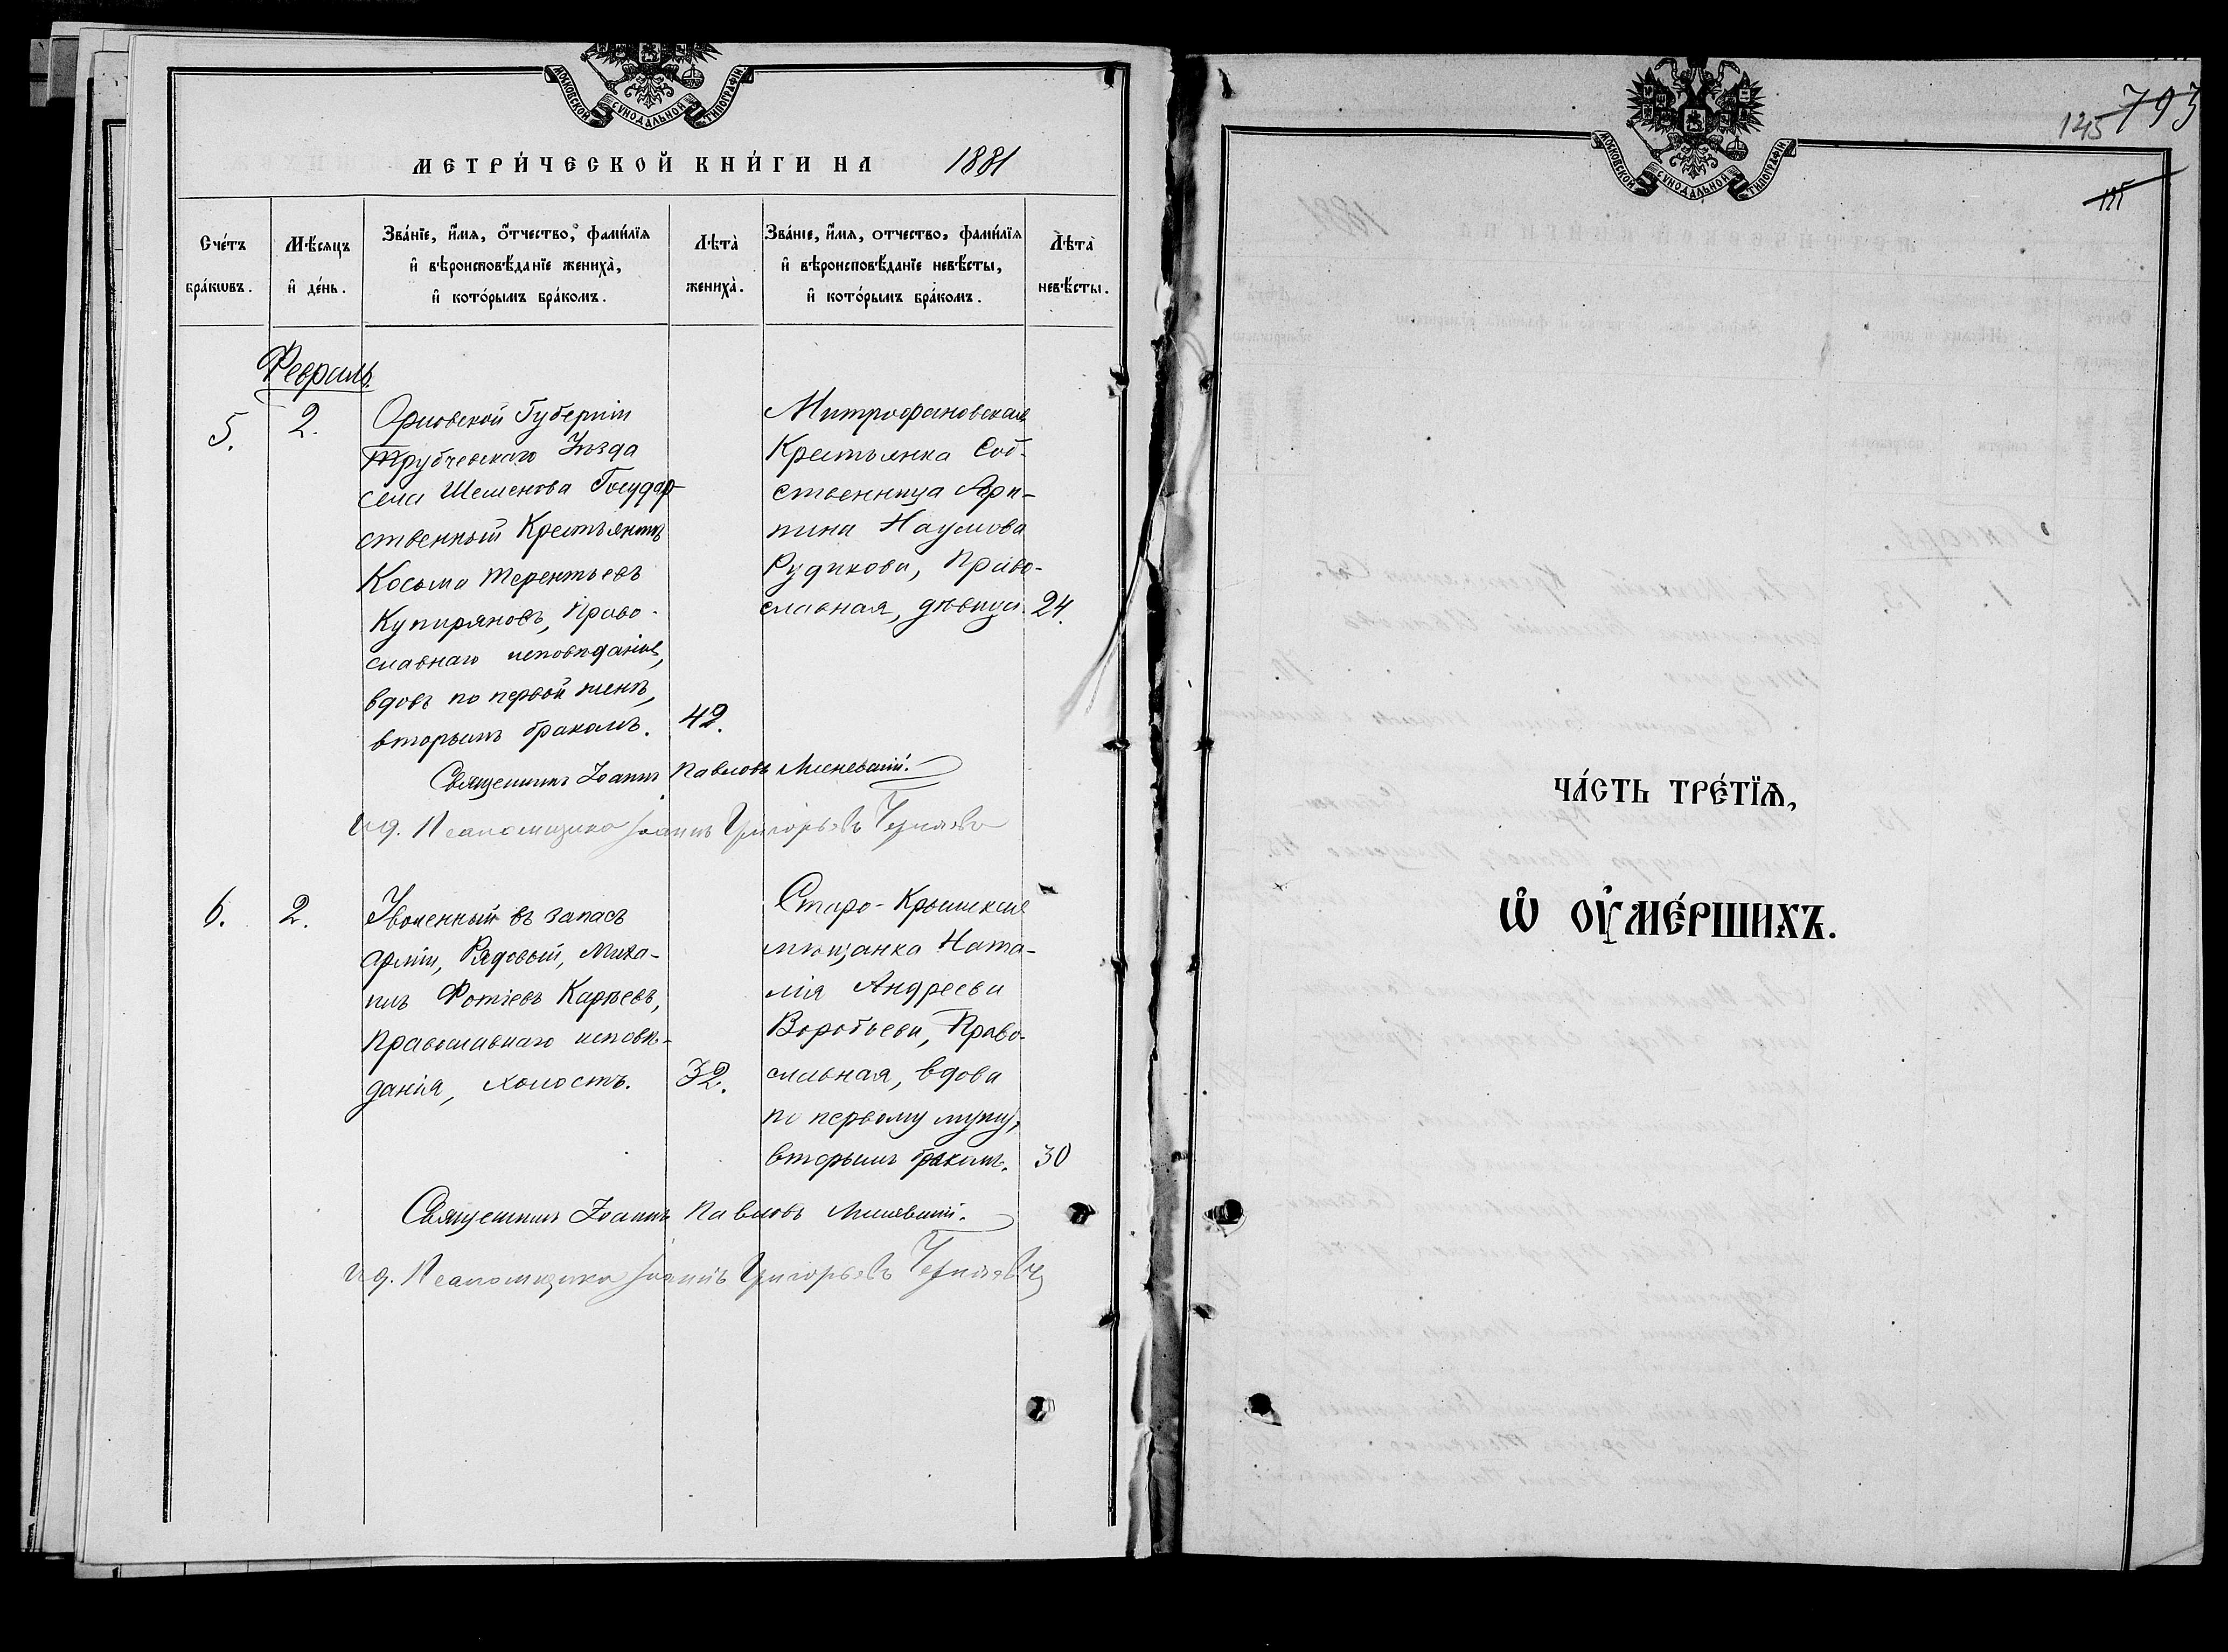 МОСКОВСКОЙ СѴНОДАЛЬНОЙ ТИПОГРАФІИ
МЕТРИ́ЧЕСКОЙ КНИ́ГИ НА 1881
Сче́тъ бра́кѡвъ.
Мѣ́сяцъ и҆ де́нь.
Зва́нїе, и҆́мя, ѻ҆́тчество, фами́лїя
и҆ вѣроисповѣ́данїе жениха̀,
и҆ кото́рымъ бра́комъ.
Лѣта̀ жениха̀.
Зва́нїе, и҆́мя, отчество, фами́лїя
и҆ вѣроисповѣ́данїе невѣ́сты,
и҆ кото́рымъ бра́комъ.
Лѣта̀ невѣ́сты.
Февраль.
5.
2.
Орловской Губерніи
Трубчевскаго Уѣзда
села Шеменова Государ-
ственный Крестьянинъ
Косьма Терентьевъ
Купиряновъ, Право-
славнаго исповѣданія,
вдовъ по первой женѣ,
вторымъ бракомъ.
42.
Митрофановская
Крестьянка Соб-
ственница Агри-
пина Наумова
Рудикова, Право-
славная, дѣвица.
24.
Священникъ Іоаннъ Павловъ
и.д. Псаломщика Іоаннъ Григорьевъ
6.
2.
Уволенный въ запасъ
арміи, Рядовый, Миха-
илъ Фотіевъ Карѣевъ,
Православнаго исповѣ-
данія, холостъ.
32.
Старо-Крымская
мѣщанка Ната-
лія Андреева
Воробьева, Право-
славная, вдова
по первому мужу,
вторымъ бракомъ.
30
Священникъ Іоаннъ Павловъ
и.д. Псаломщика Іоаннъ Григорьевъ
МОСКОВСКОЙ СѴНОДАЛЬНОЙ ТИПОГРАФІИ
145 793
ЧА́СТЬ ТРЕ́ТЇѦ,
Ѡ҆ ОУ҆МЕ́РШИХЪ.